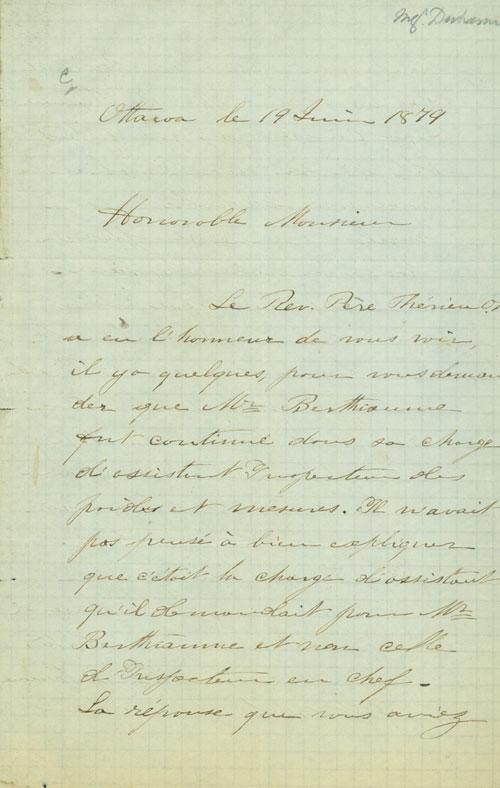 Mgr. Duhamel
Ottawa le 19 Juin 1879
Honorable Monsieur
Le Rev. Père Thérien O.
a eu l'honneur de vous voir,
il ya quelques, pour vous deman
der que Mr Berthiaume
fut continué dans sa charge
d'assistant Inspecteur des
poides et mesures. Il n'avait
pas pensé à bien expliquer
que c'était la charge d'assistant
qu'il demandait pour Mr
Berthiaume et non celle
d'Inspecteur en chef.
La réponse que vous aviez